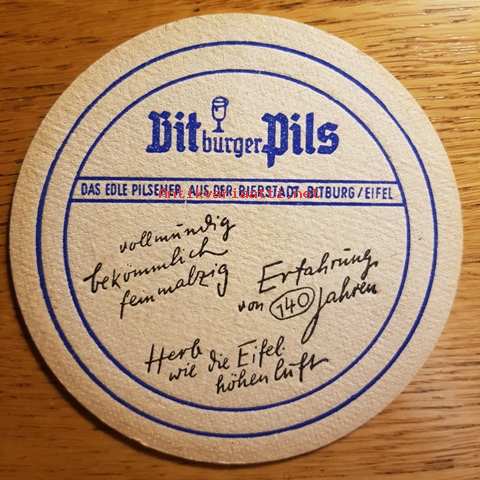 Bitburger Pils
DAS EDLE PILSENER AUS DER BIERSTADT BITBURG/EIFEL
vollmundig
bekömmlich
feinmalzig
Erfahrung
von 140 Jahren
Herb
wie die Eifel-
höhenluft